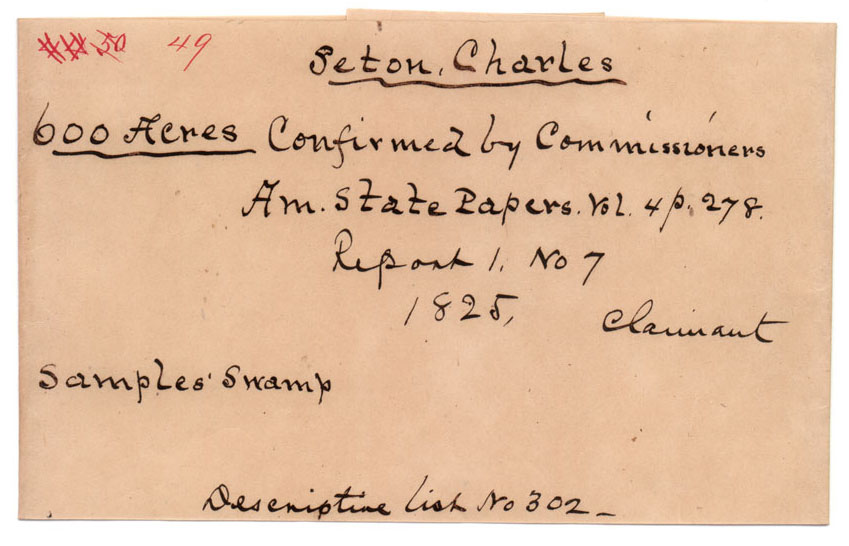 50 49
Seton, Charles
600 Acres Confirmed by Commissioners
Am. State Papers. Vol. 4 p. 278.
Report 1. No 7
1825,
Claimant
Samples' Swamp
Descriptive list No 302 –